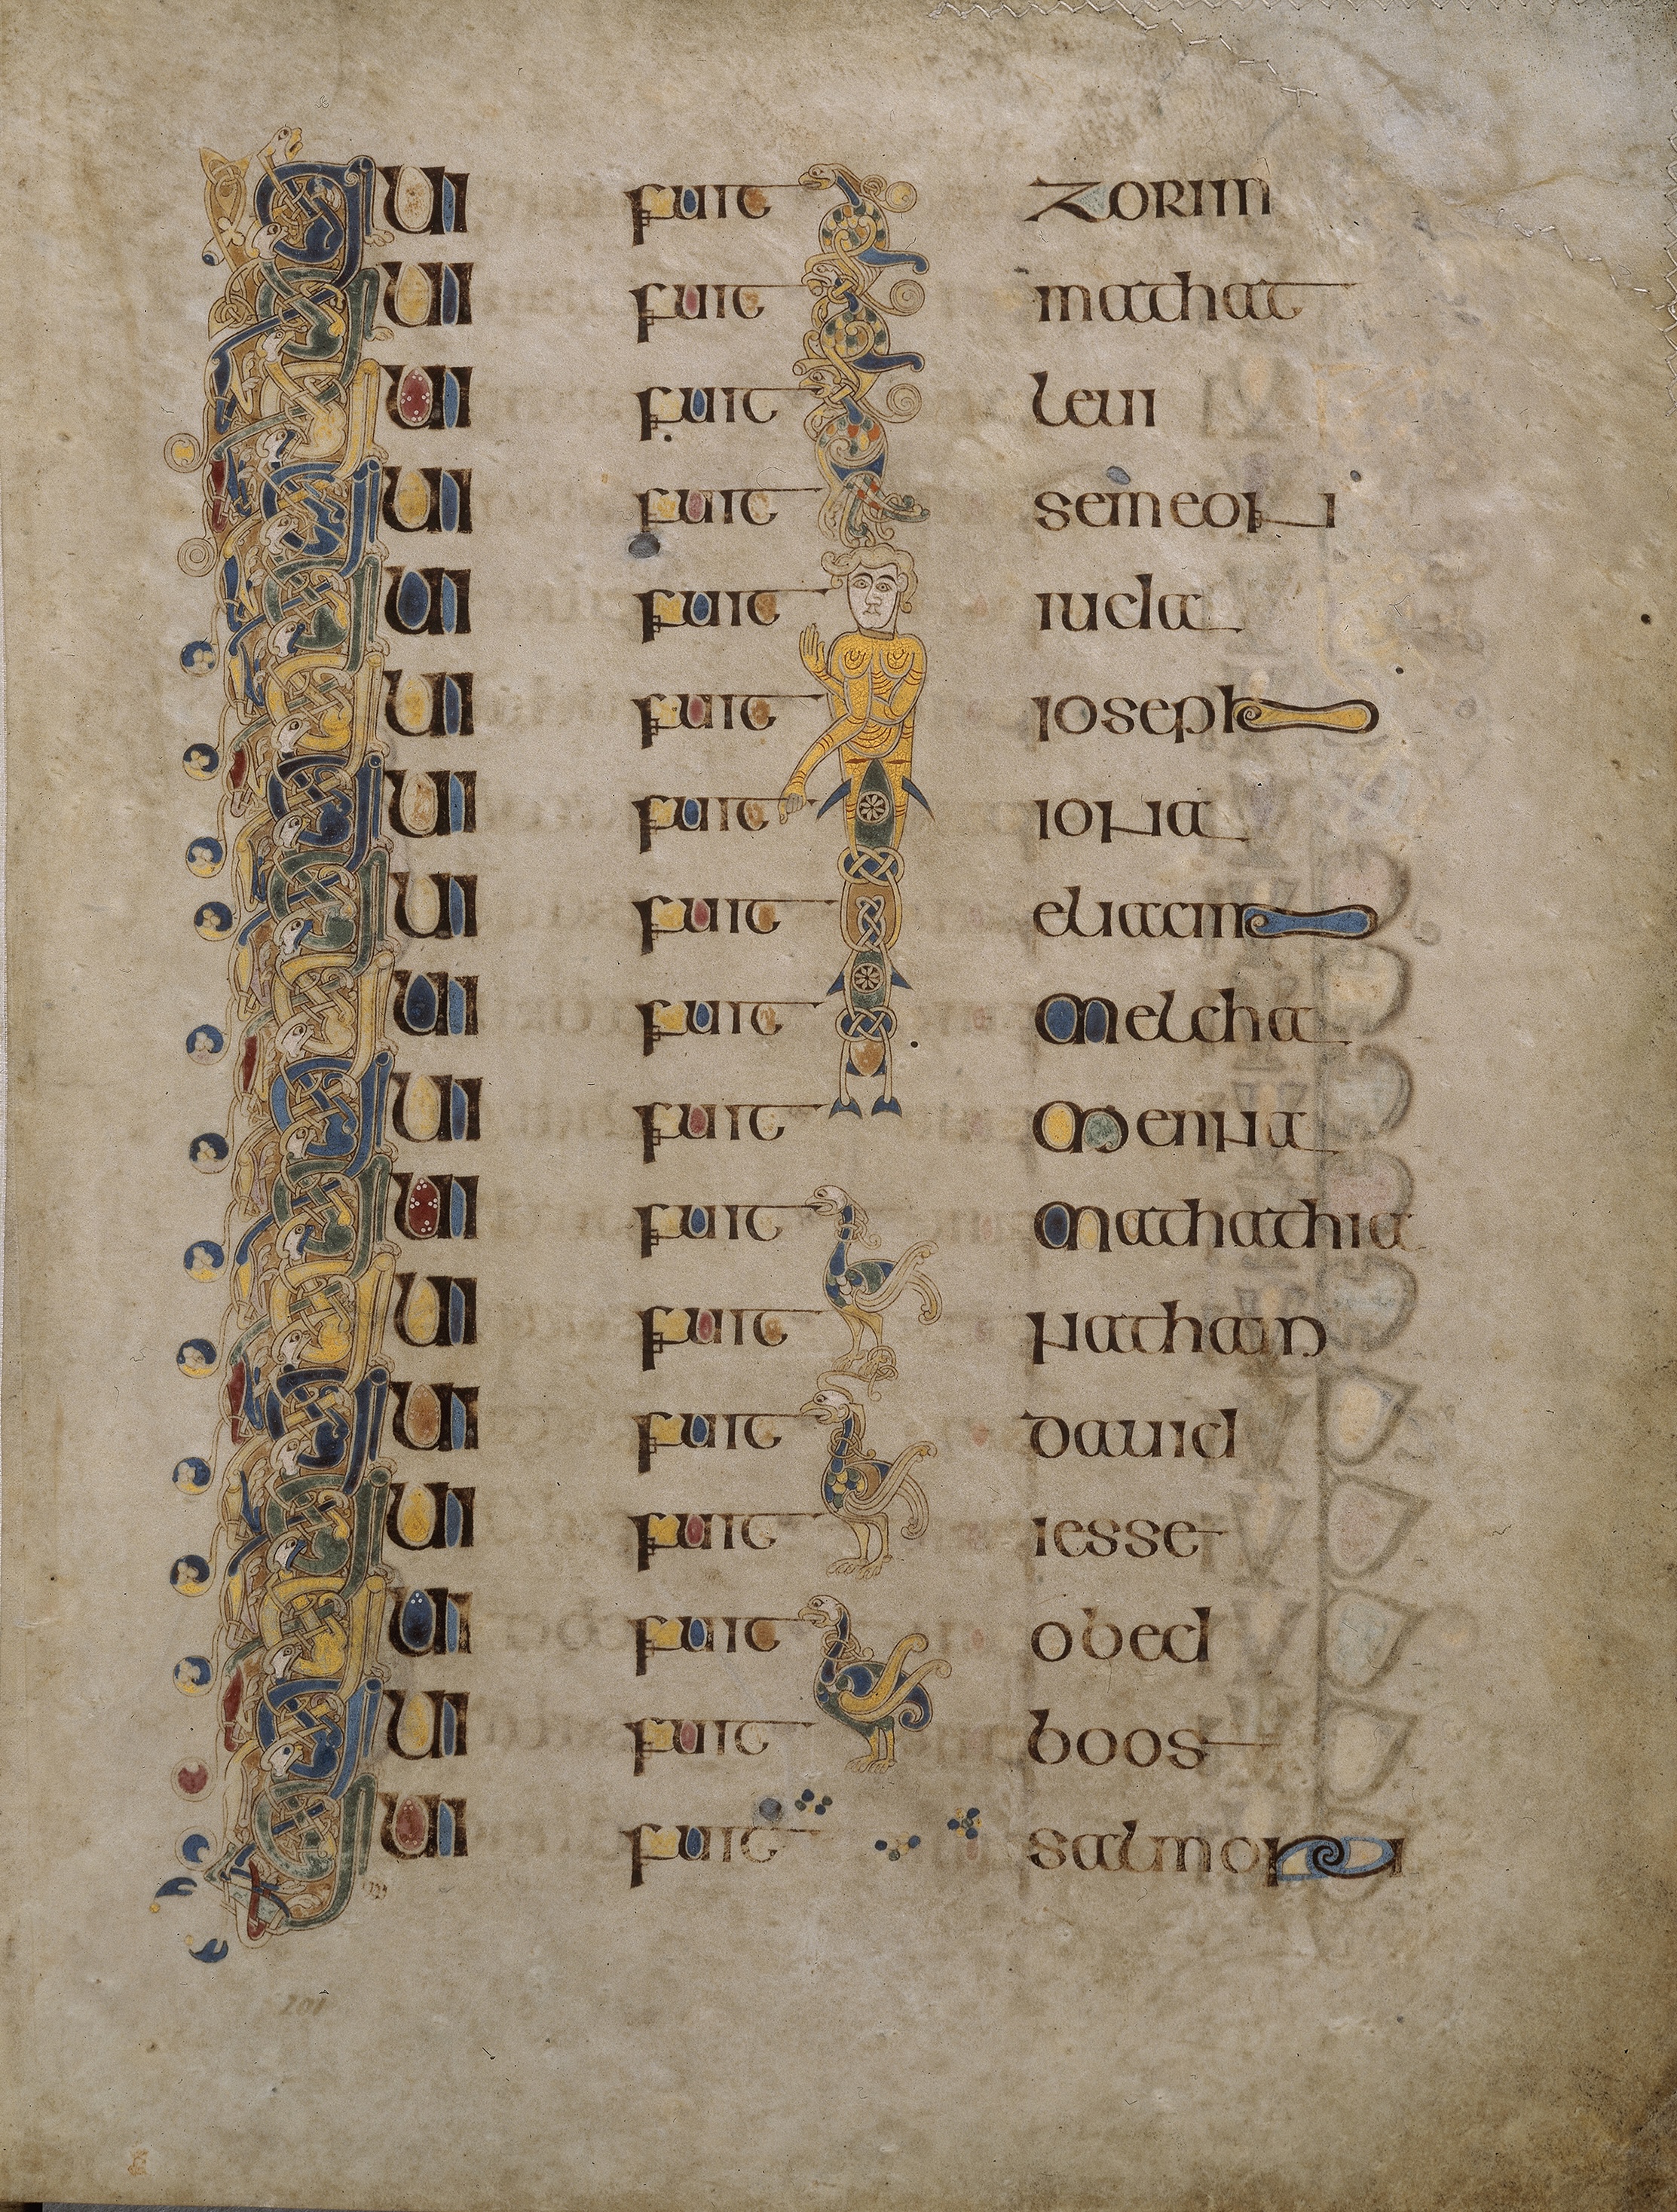 QUI fuit ZORIM
QUI fuit mathat
QUI fuit leui
QUI fuit semeon
QUI fuit iuda
QUI fuit ioseph
QUI fuit iona
QUI fuit eliacim
QUI fuit melcha
QUI fuit menna
QUI fuit mathathia
QUI fuit nathan
QUI fuit dauid
QUI fuit iesse
QUI fuit obed
QUI fuit boos
QUI fuit salmon
201